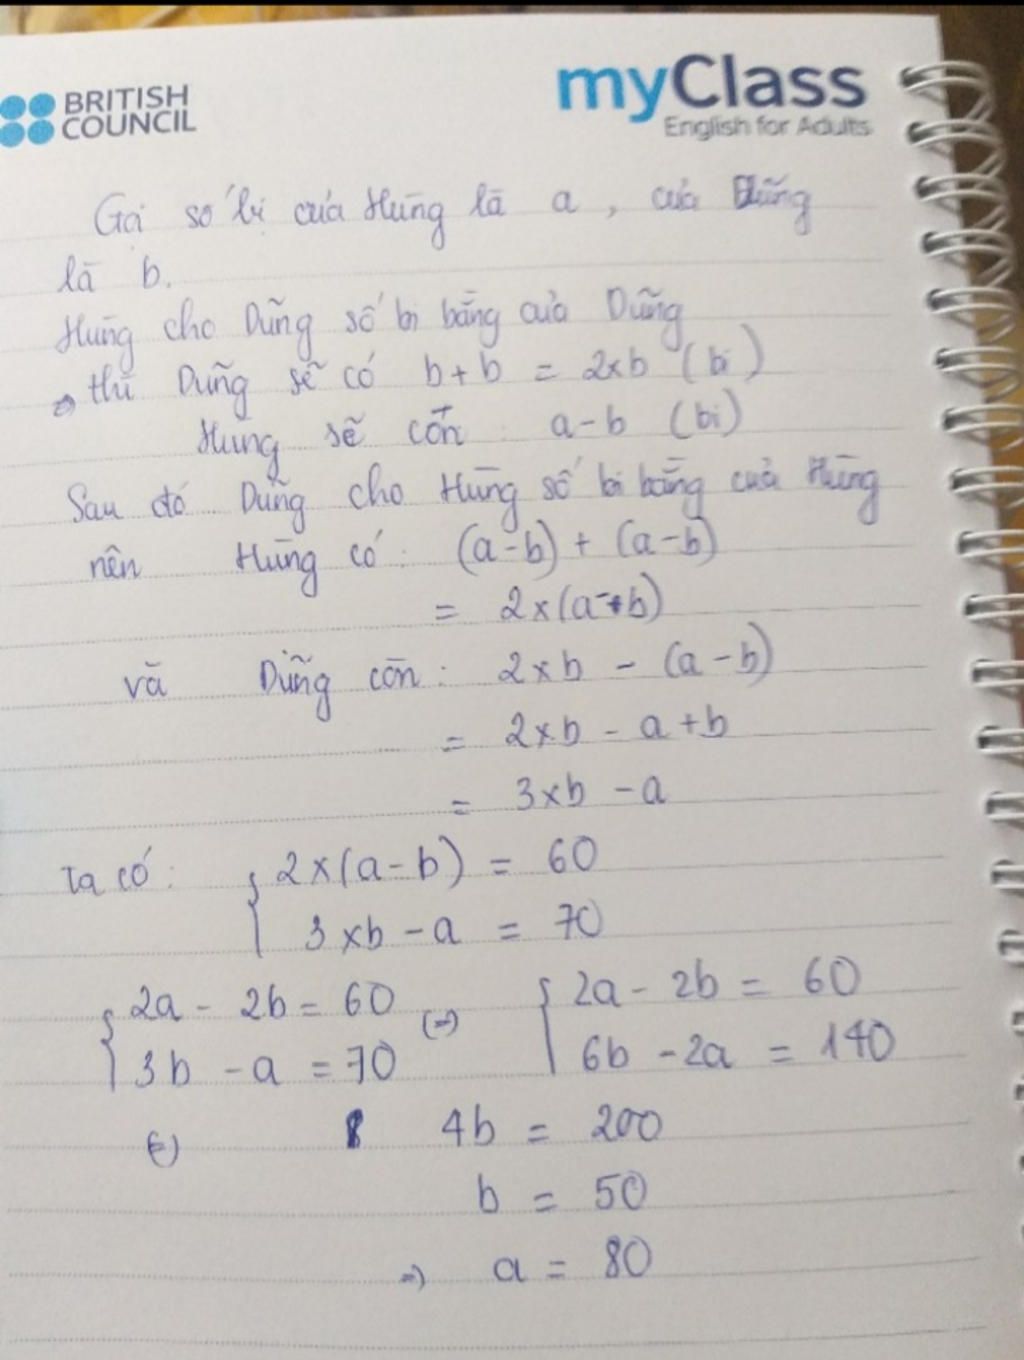 BRITISH
COUNCIL
myClass
English for Adults
Gọi số bi của Hùng là a, của Dũng
là b.
Hùng cho Dũng số bi bằng của Dũng
=> thì Dũng sẽ có b + b = 2×b (bi)
Hùng sẽ còn a-b (bi)
Sau đó Dũng cho Hùng số bi bằng của Hùng
nên Hùng có: (a-b) + (a-b)
= 2×(a-b)
và Dũng còn: 2×b - (a-b)
= 2×b - a + b
= 3×b - a
Ta có: { 2×(a-b) = 60
3×b - a = 70
{ 2a - 2b = 60 (=) { 2a - 2b = 60
3b - a = 70 6b - 2a = 140
4b = 200
b = 50
=) a = 80